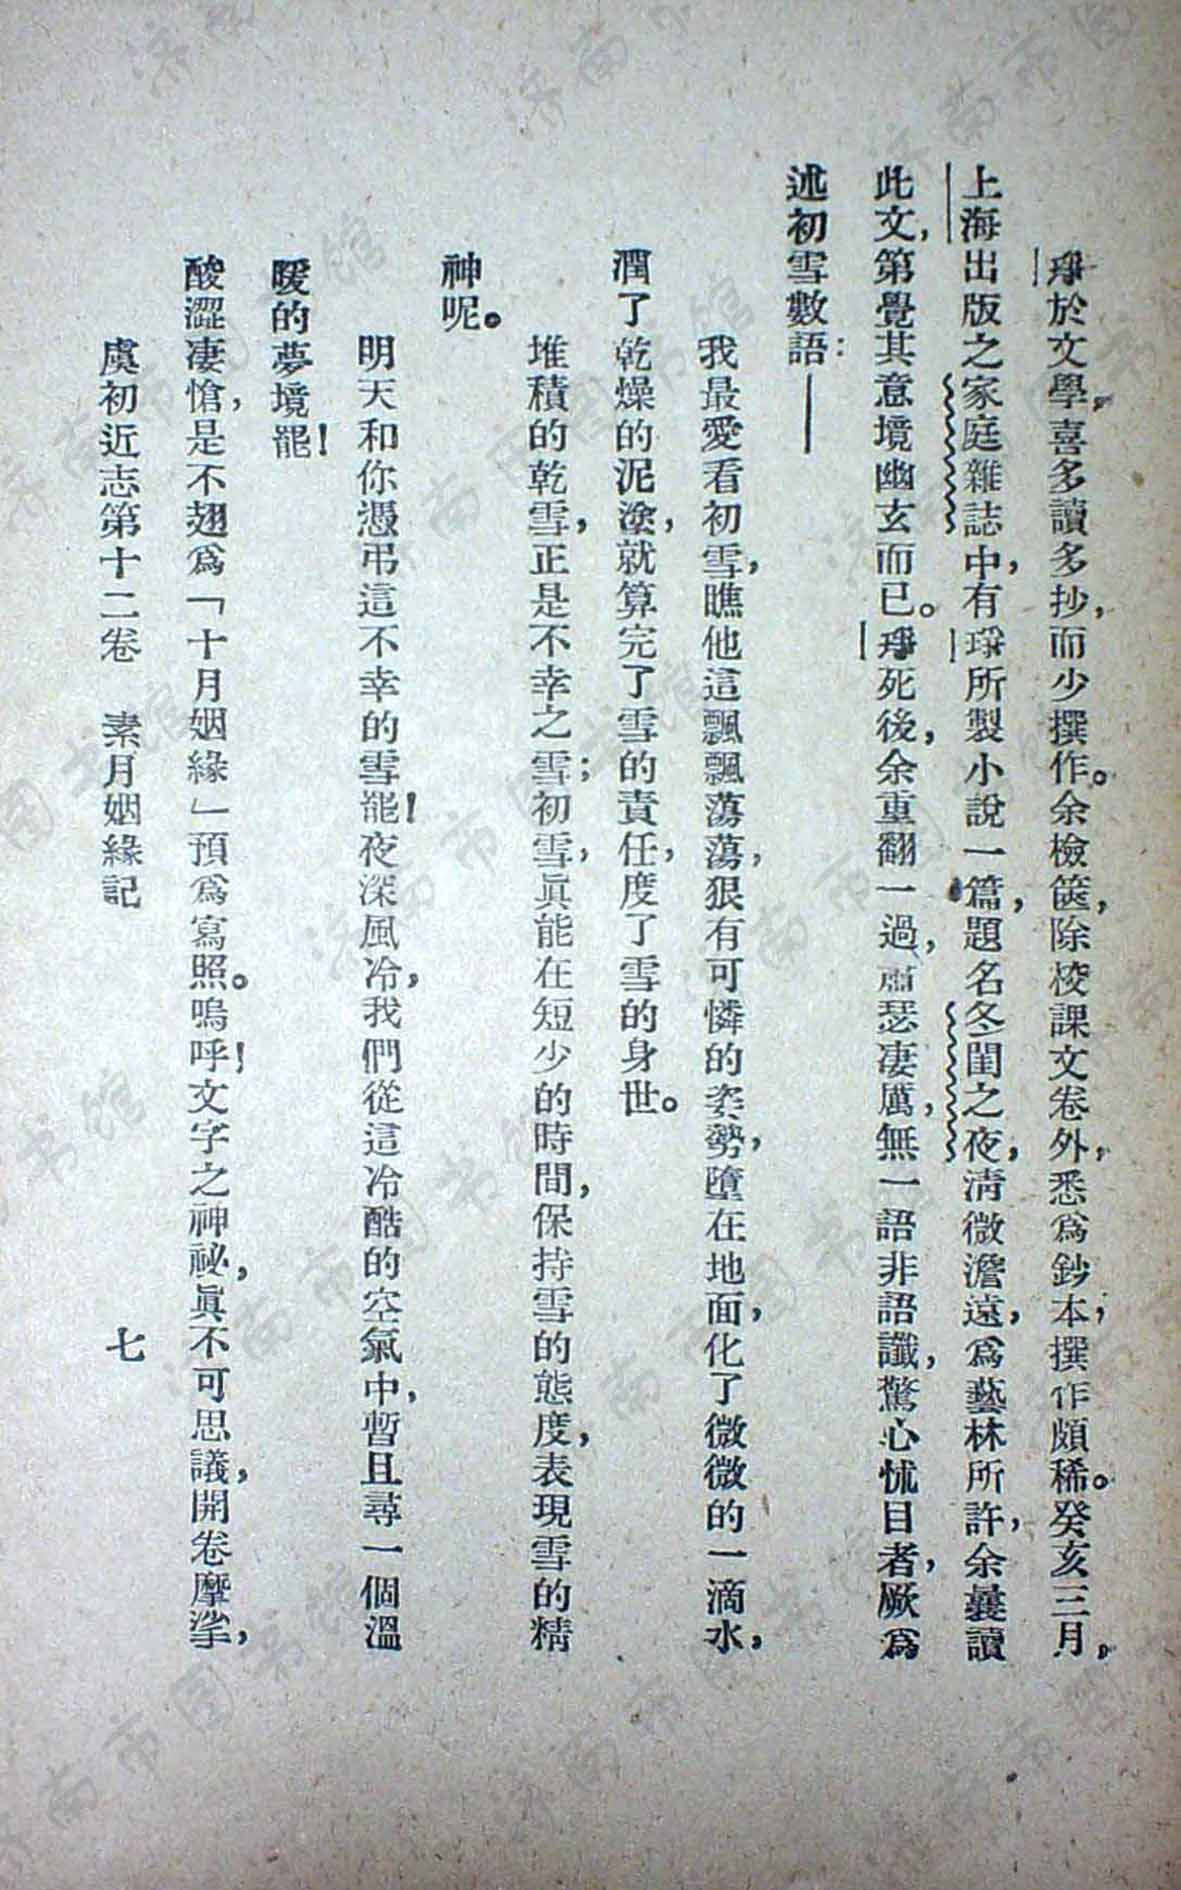 琤於文學，喜多讀多抄，而少撰作。余檢篋，除校課文卷外，悉爲鈔本，撰作頗稀。癸亥三月，
上海出版之家庭雜誌中，有琤所製小說一篇，題名冬閨之夜，淸微澹遠，爲藝林所許，余曩讀
此文，第覺其意境幽玄而已。琤死後，余重翻一過，肅瑟凄厲，無一語非語讖，驚心怵目者，厥爲
述初雪數語：——
我最愛看初雪，瞧他這飄飄蕩蕩，狠有可憐的姿勢，墮在地面，化了微微的一滴水，
潤了乾燥的泥塗，就算完了雪的責任，度了雪的身世。
堆積的乾雪，正是不幸之雪；初雪，眞能在短少的時間，保持雪的態度，表現雪的精
神呢。
明天和你憑弔這不幸的雪罷！夜深風冷，我們從這冷酷的空氣中，暫且尋一個溫
暖的夢境罷！
酸澀凄愴，是不翅爲「十月姻緣」預爲寫照。嗚呼！文字之神祕，眞不可思議，開卷摩挲，
虞初近志第十二卷　素月姻緣記
七
济南市图书馆